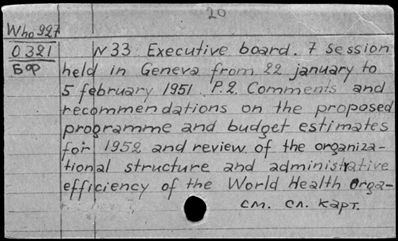 20
Who 927
0321
БФ
N 33. Executive board. 7 session
held in Geneva from 22 january to
5 february 1951. P.2. Comments and
recommendations on the proposed
programme and budget estimates
for 1952 and review of the organiza-
tional structure and administrative
efficiency of the World Health Orga-
см. сл. карт.